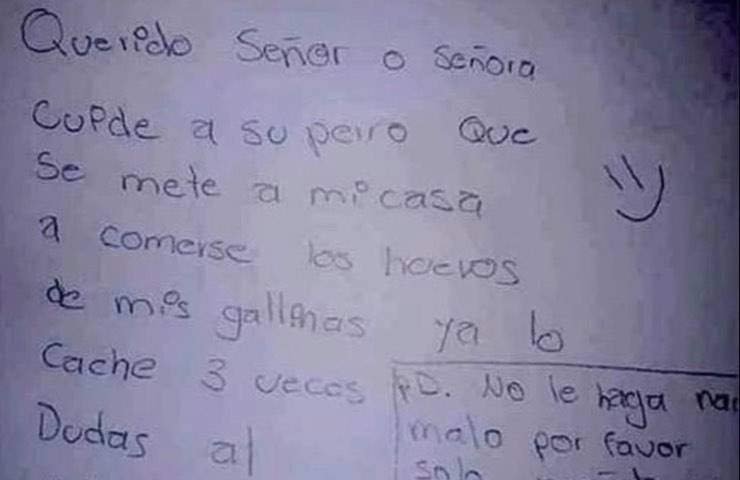 Querido Señor o Señora
Cuide a su perro Que
Se mete a mi casa
a comerse los huevos
de mis gallinas ya lo
Cache 3 veces
Dudas al
PD. No le haga
malo por favor
solo